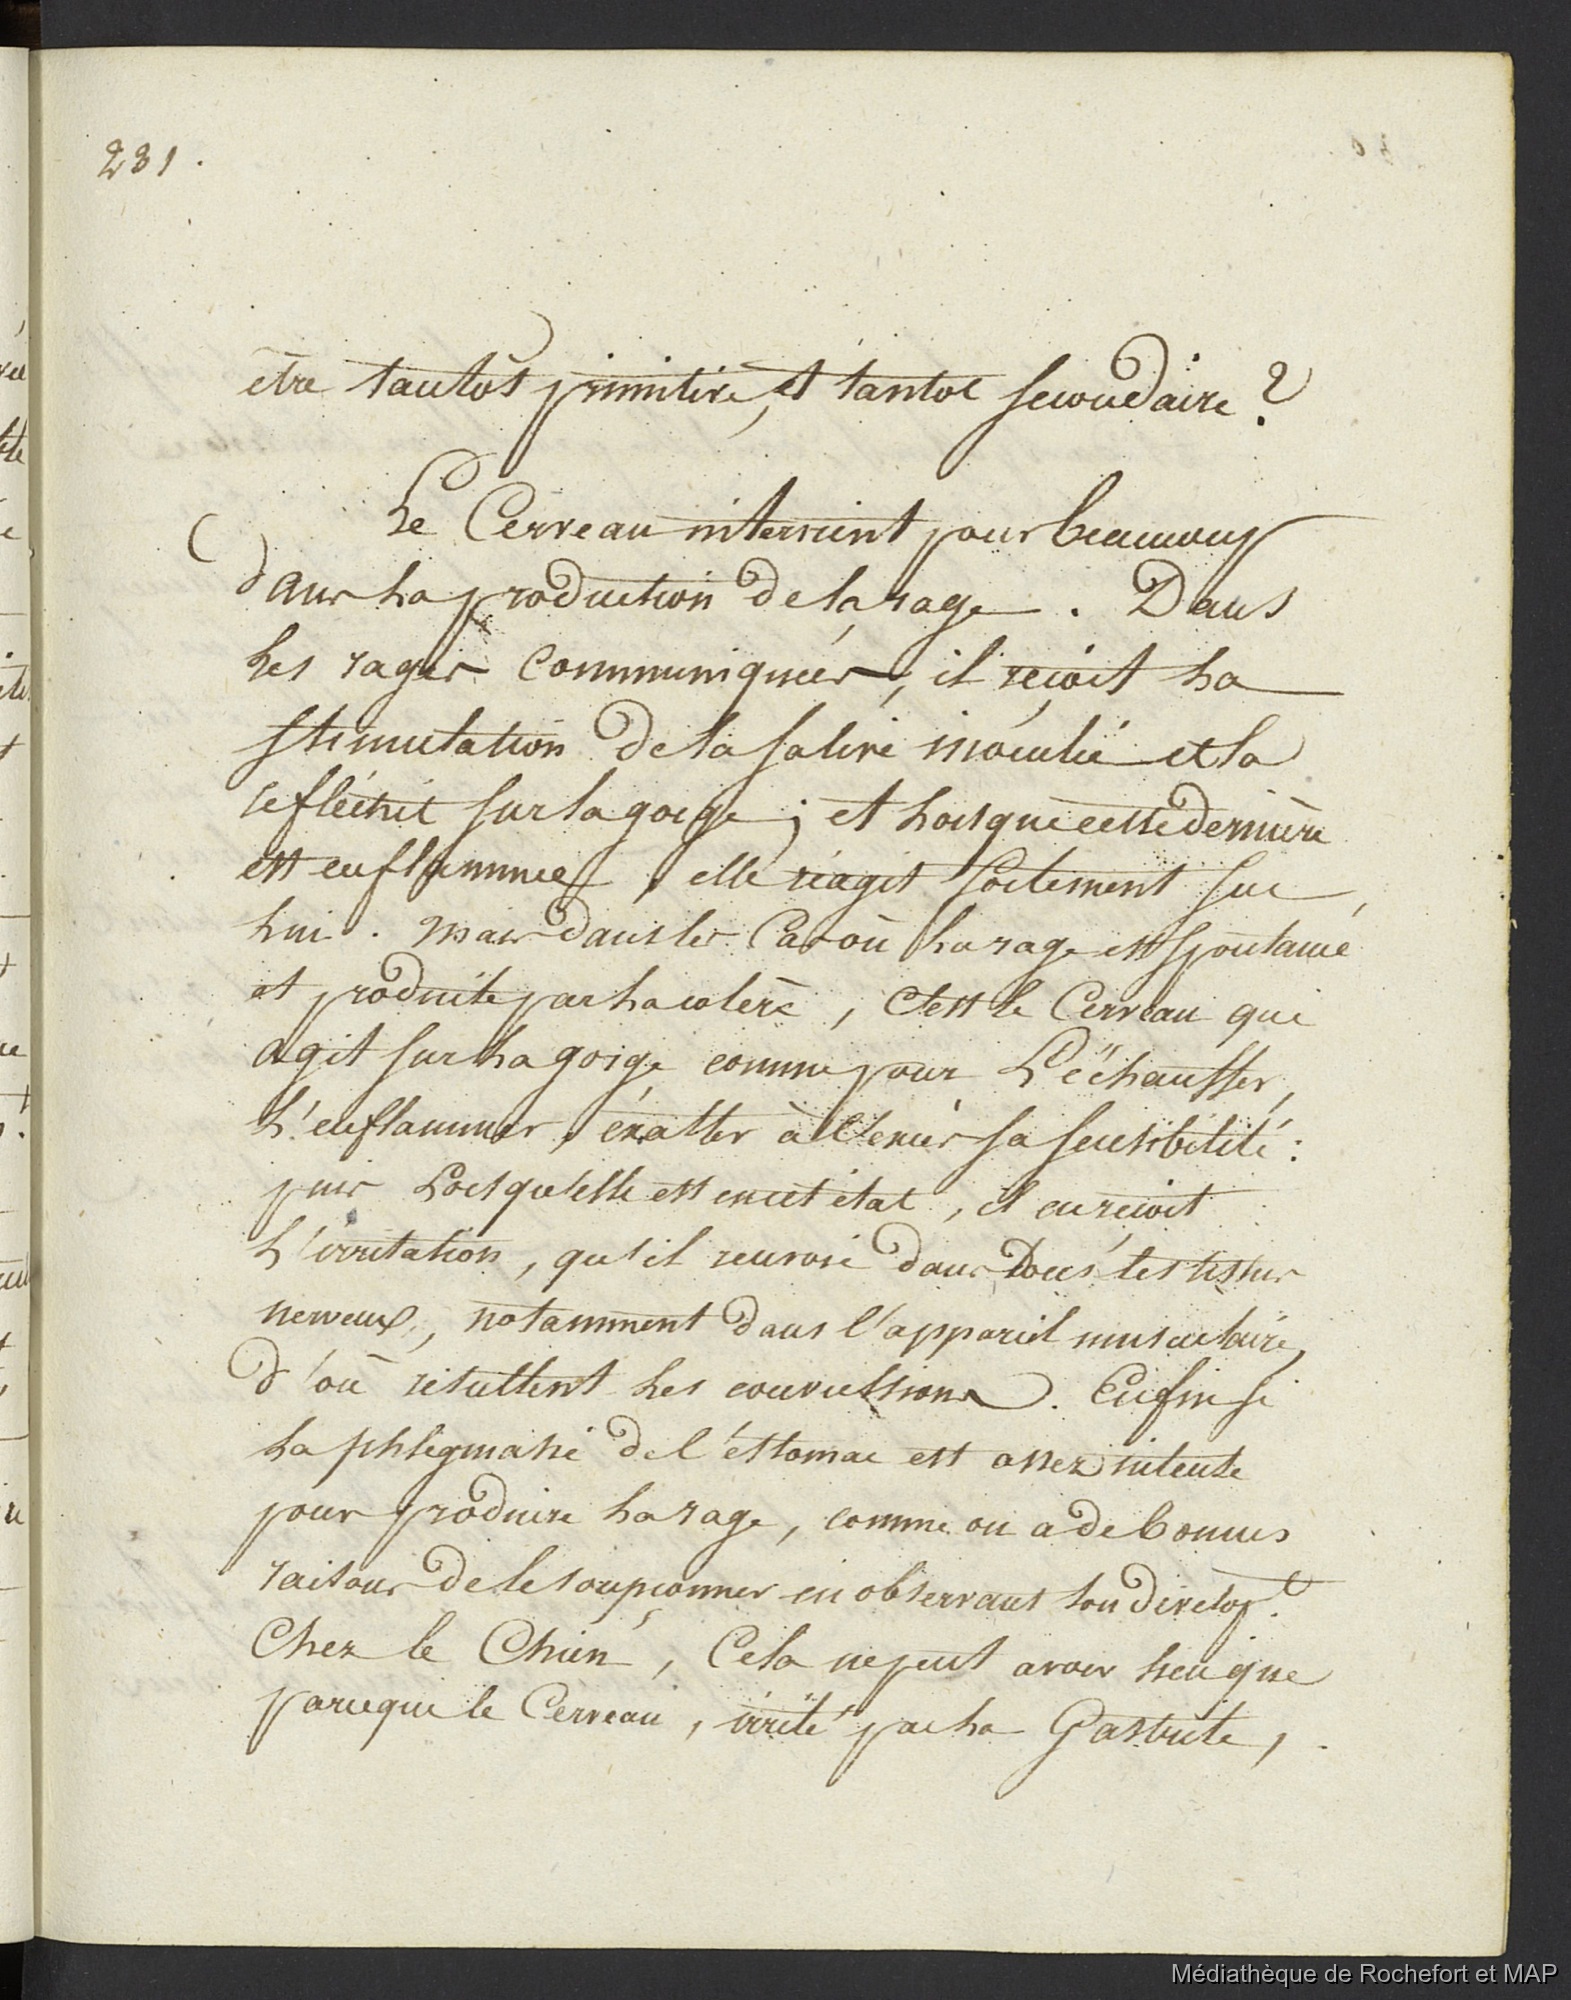 231.
être tantôt primitive, et tantot secondaire?
Le Cerveau intervient pour beaucoup
dans la production de la rage. Dans
les rages communiquées, il reçoit la
stimulation de la salive inoculée et la
réfléchit sur la gorge; et lorsque cette dernière
est enflammée, elle réagit fortement sur
lui. Mais dans les Cas où la rage est spontanée
et produite par la colère, C'est le Cerveau qui
agit sur la gorge comme pour L'échauffer,
L'enflammer, exalter à l'excès sa sensibilité:
puis Lorsqu'elle est en cet état, il en reçoit
L'irritation, qu'il renvoie dans Tous les tissus
nerveux, notamment dans l'appareil musculaire,
d'où résultent les convulsions. Enfin si
la phlegmasie de l'éstomac est assez intense
pour produire la rage, comme on a de bonnes
raisons de le soupçonner en observant son dévelop.t
Chez le Chien, Cela ne peut avoir lieu que
parceque le Cerveau, irrité par la Gastrite,
Médiathèque de Rochefort et MAP